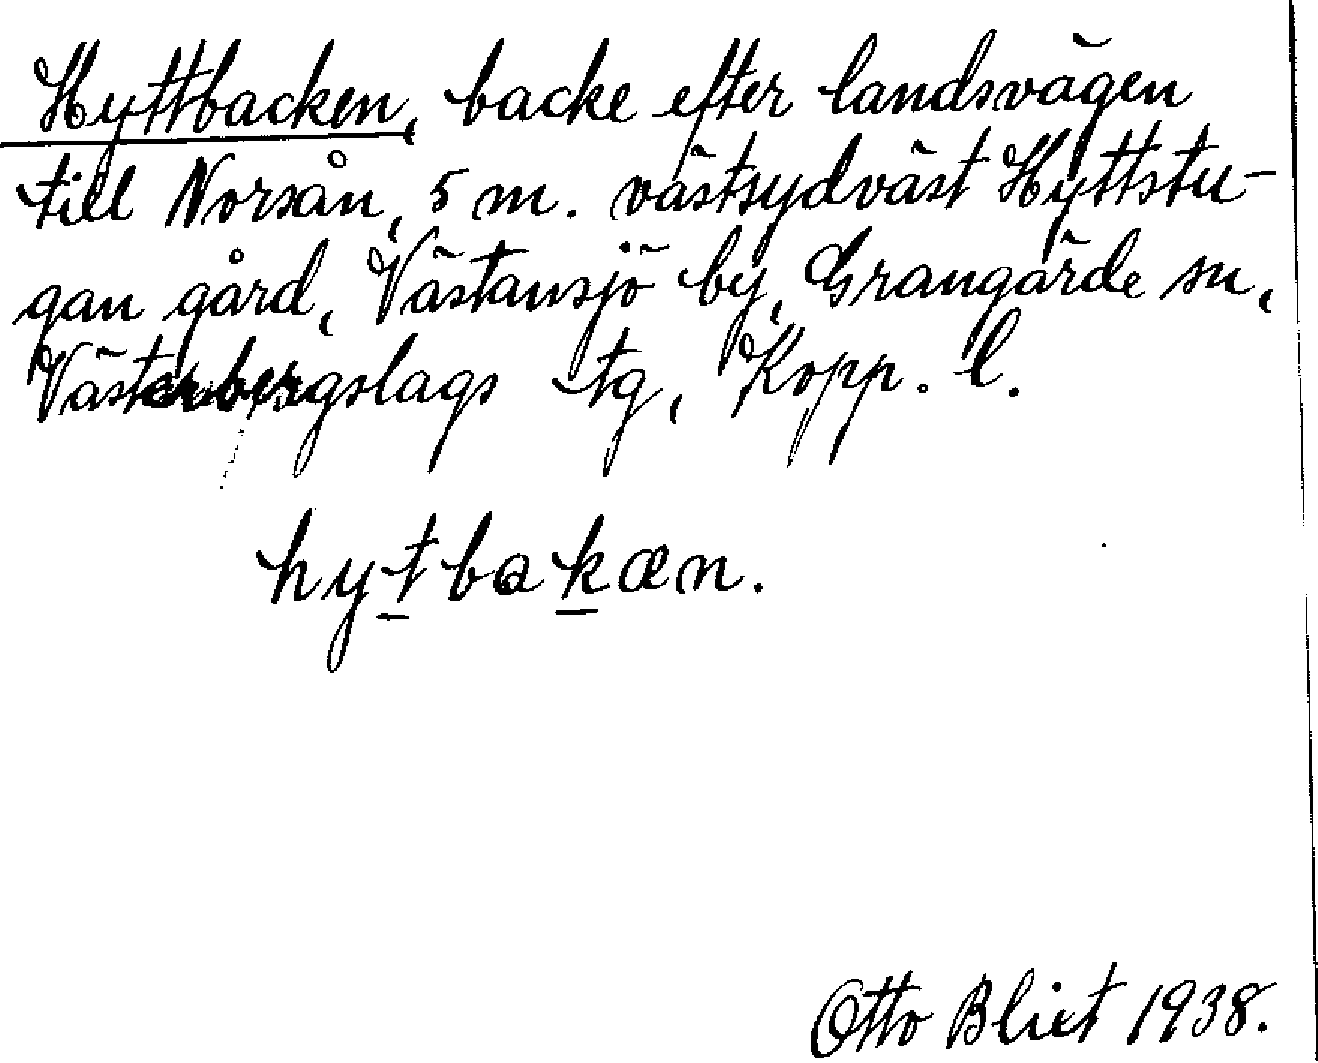 Hyttbacken, backe efter landsvägen
till Norsån, 5 m. västsydväst Hyttstu-
gan gård, Västansjö by, Grangärde sn,
Västerbergslags tg, Kopp. l.
hytbakæn.
Otto Blixt 1938.